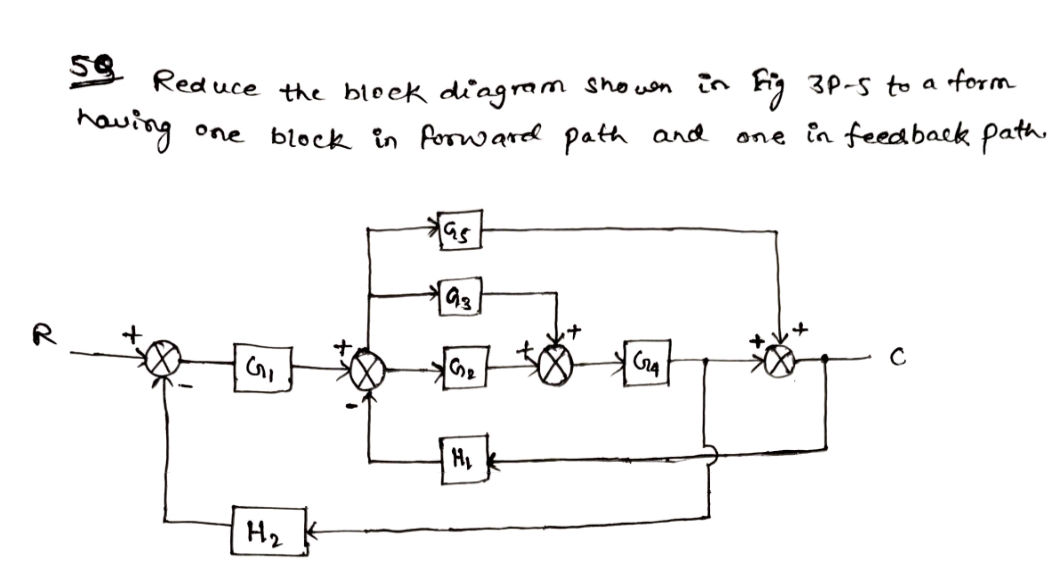 5Q Reduce the block diagram shown in Fig 3P-5 to a form
having one block in forward path and one in feedback path.
G5
G3
R + G1 + G2 + + G4 + + C
- -
H1
H2